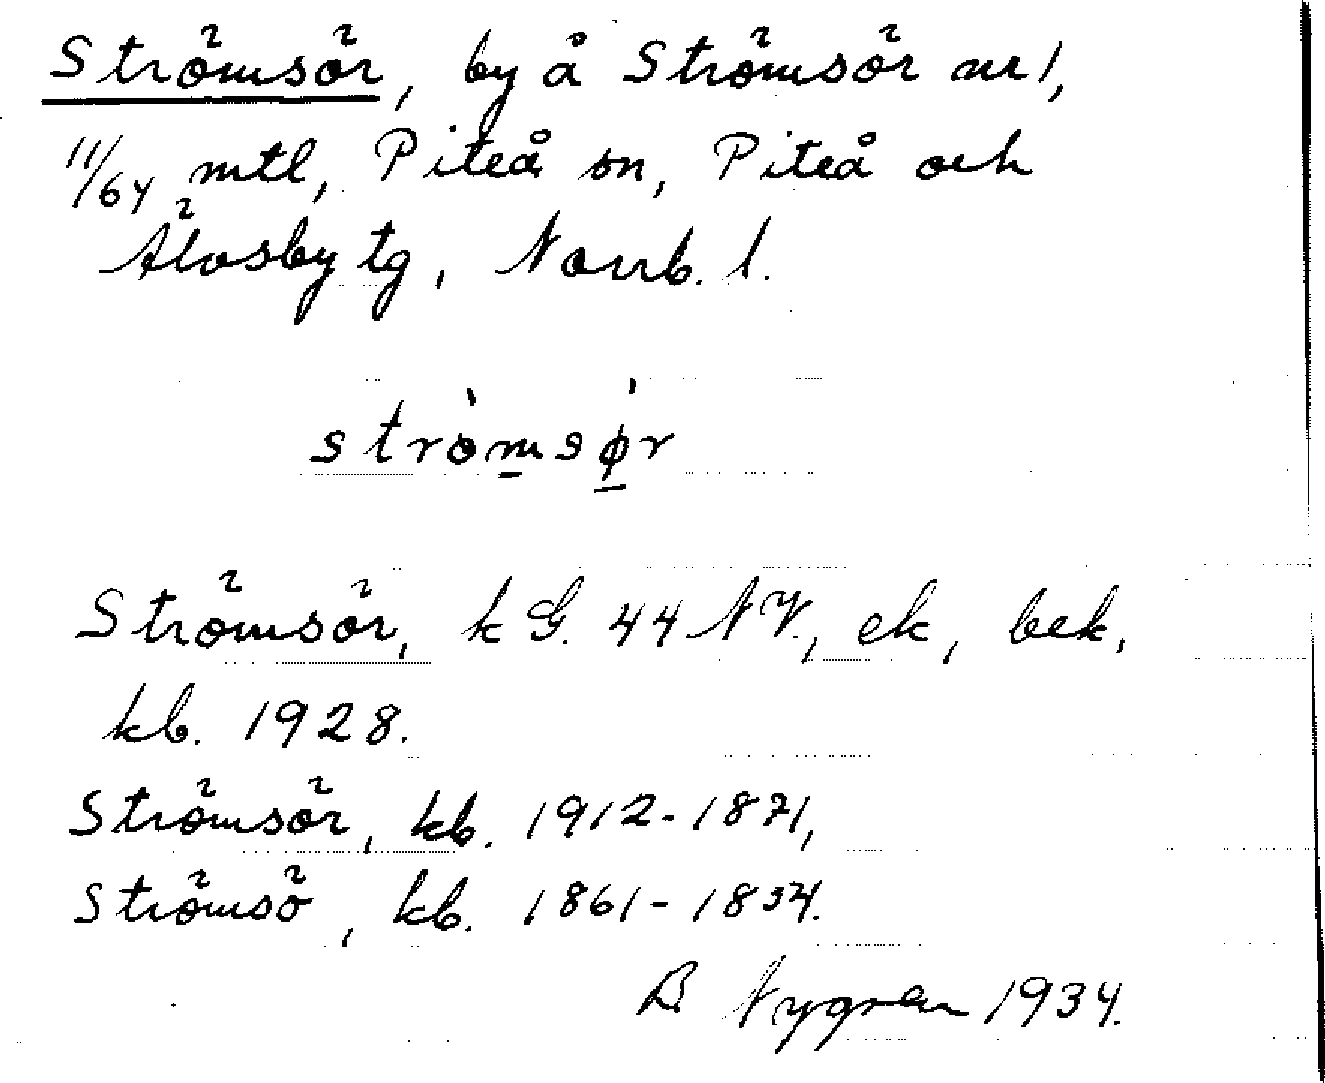 Strömsör, by å Strömsör nr 1,
11/64 mtl, Piteå sn, Piteå och
Älvsby tg, Norrb. l.
strömsør
Strömsör, k G. 44 NV., ek, bek,
kb. 1928.
Strömsör, kb. 1912-1871,
Strömsö, kb. 1861-1834.
B Nygren 1934.